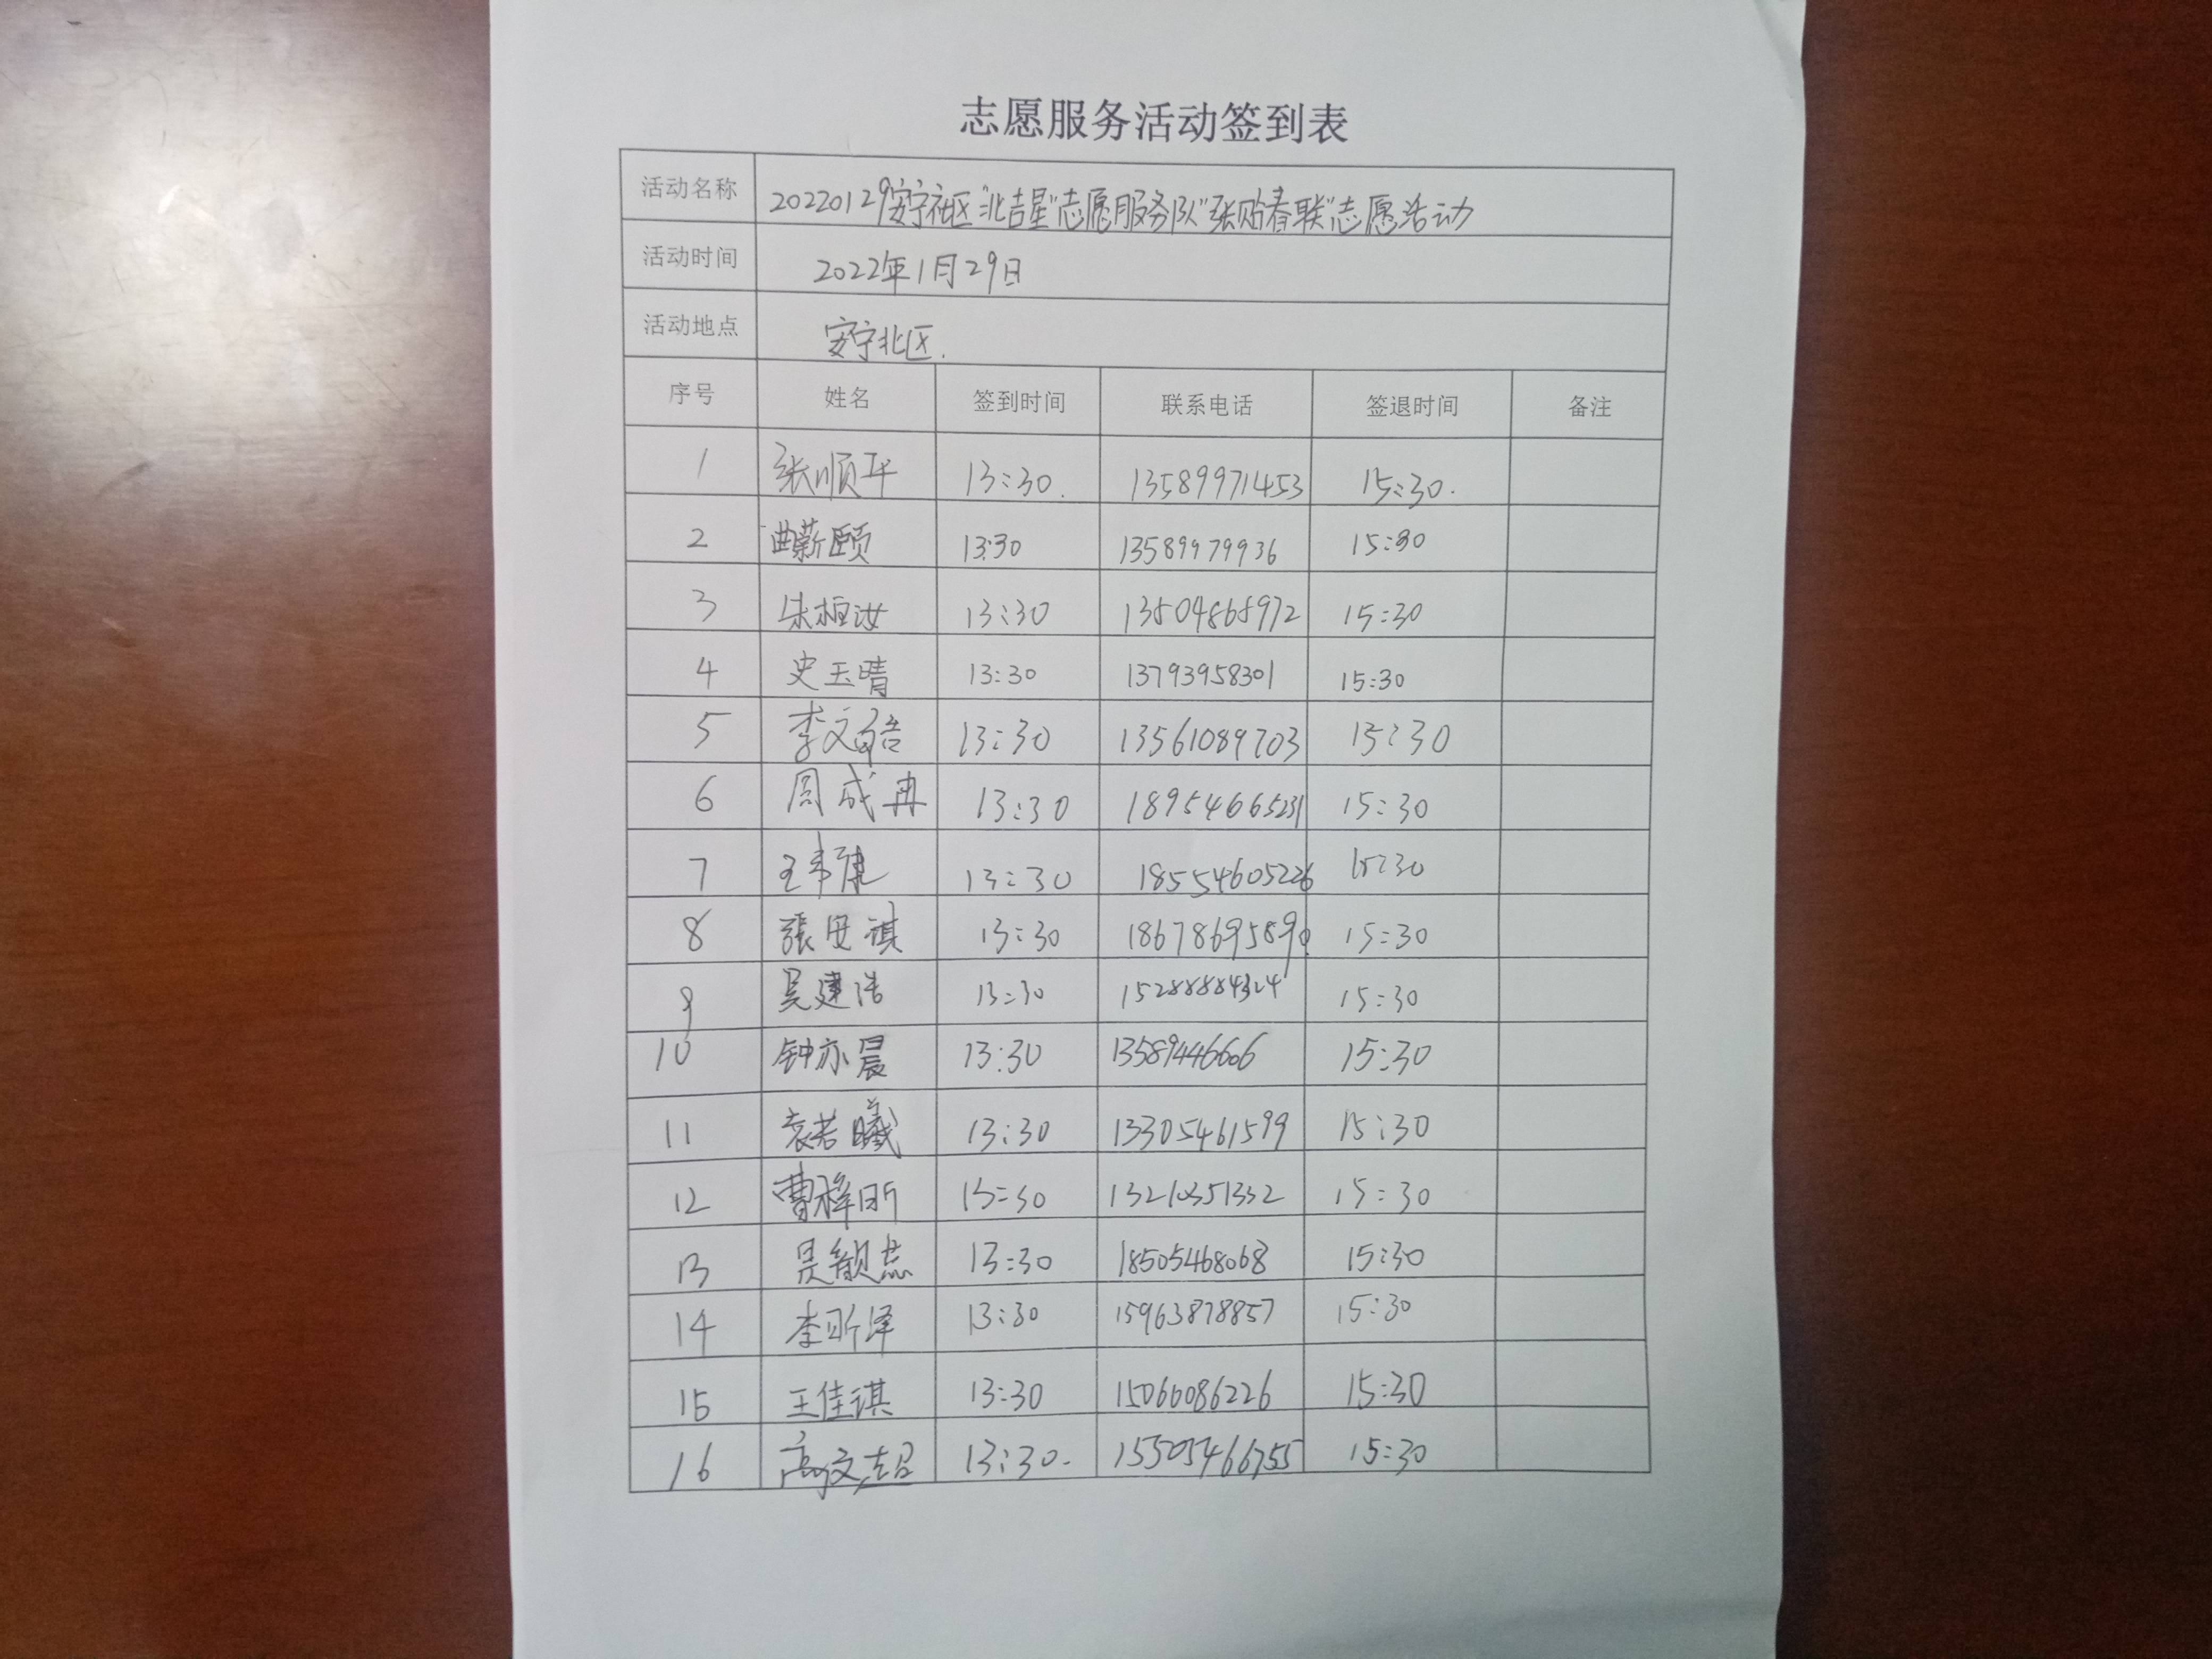 志愿服务活动签到表
活动名称 20220129安宁社区"北吉星"志愿服务队"张贴春联"志愿活动
活动时间 2022年1月29日
活动地点 安宁北区.
序号 姓名 签到时间 联系电话 签退时间 备注
1 张顺平 13:30. 13589971453 15:30.
2 曲薪颐 13:30 13589979936 15:30
3 朱桓汝 13:30 15:30
4 史玉晴 13:30 13793958301 15:30
5 李文皓 13:30 13561089703 15:30
6 周成冉 13:30 18954665231 15:30
7 王韦健 13:30 18554605226 15:30
8 張安祺 13:30 18678695890 15:30
9 吴建浩 13:30 15288884324 15:30
10 钟亦晨 13:30 13589446606 15:30
11 袁若曦 13:30 13305461599 15:30
12 曹梓昕 13:30 13210351332 15:30
13 吴韻蕊 13:30 18505468068 15:30
14 李昕泽 13:30 15963878857 15:30
15 王佳琪 13:30 15066086226 15:30
16 高文喆 13:30. 15505466755 15:30